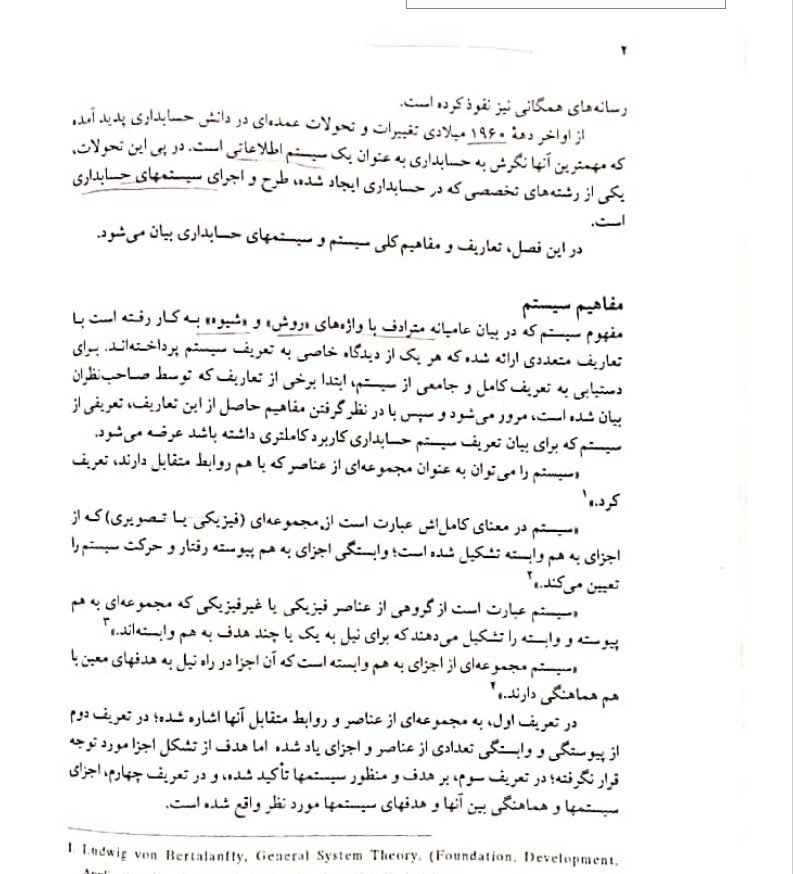 ۲
رسانه‌های همگانی نیز نفوذ کرده است.
از اواخر دههٔ ۱۹۶۰ میلادی تغییرات و تحولات عمده‌ای در دانش حسابداری پدید آمده
که مهمترین آنها نگرش به حسابداری به عنوان یک سیستم اطلاعاتی است. در پی این تحولات،
یکی از رشته‌های تخصصی که در حسابداری ایجاد شده، طرح و اجرای سیستمهای حسابداری
است.
در این فصل، تعاریف و مفاهیم کلی سیستم و سیستمهای حسابداری بیان می‌شود.
مفاهیم سیستم
مفهوم سیستم که در بیان عامیانه مترادف با واژه‌های «روش» و «شیوه» به کار رفته است با
تعاریف متعددی ارائه شده که هر یک از دیدگاه خاصی به تعریف سیستم پرداخته‌اند. برای
دستیابی به تعریف کامل و جامعی از سیستم، ابتدا برخی از تعاریف که توسط صاحب‌نظران
بیان شده است، مرور می‌شود و سپس با در نظر گرفتن مفاهیم حاصل از این تعاریف، تعریفی از
سیستم که برای بیان تعریف سیستم حسابداری کاربرد کاملتری داشته باشد عرضه می‌شود.
«سیستم را می‌توان به عنوان مجموعه‌ای از عناصر که با هم روابط متقابل دارند، تعریف
کرد.»۱
«سیستم در معنای کامل‌اش عبارت است از مجموعه‌ای (فیزیکی یا تصویری) که از
اجزای به هم وابسته تشکیل شده است؛ وابستگی اجزای به هم پیوسته رفتار و حرکت سیستم را
تعیین می‌کند.»۲
«سیستم عبارت است از گروهی از عناصر فیزیکی یا غیرفیزیکی که مجموعه‌ای به هم
پیوسته و وابسته را تشکیل می‌دهند که برای نیل به یک یا چند هدف به هم وابسته‌اند.»۳
«سیستم مجموعه‌ای از اجزای به هم وابسته است که آن اجزا در راه نیل به هدفهای معین با
هم هماهنگی دارند.»۴
در تعریف اول، به مجموعه‌ای از عناصر و روابط متقابل آنها اشاره شده؛ در تعریف دوم
از پیوستگی و وابستگی تعدادی از عناصر و اجزای یاد شده اما هدف از تشکل اجزا مورد توجه
قرار نگرفته؛ در تعریف سوم، بر هدف و منظور سیستمها تأکید شده، و در تعریف چهارم، اجزای
سیستمها و هماهنگی بین آنها و هدفهای سیستمها مورد نظر واقع شده است.
1. Ludwig von Bertalanffy, General System Theory, (Foundation, Development,